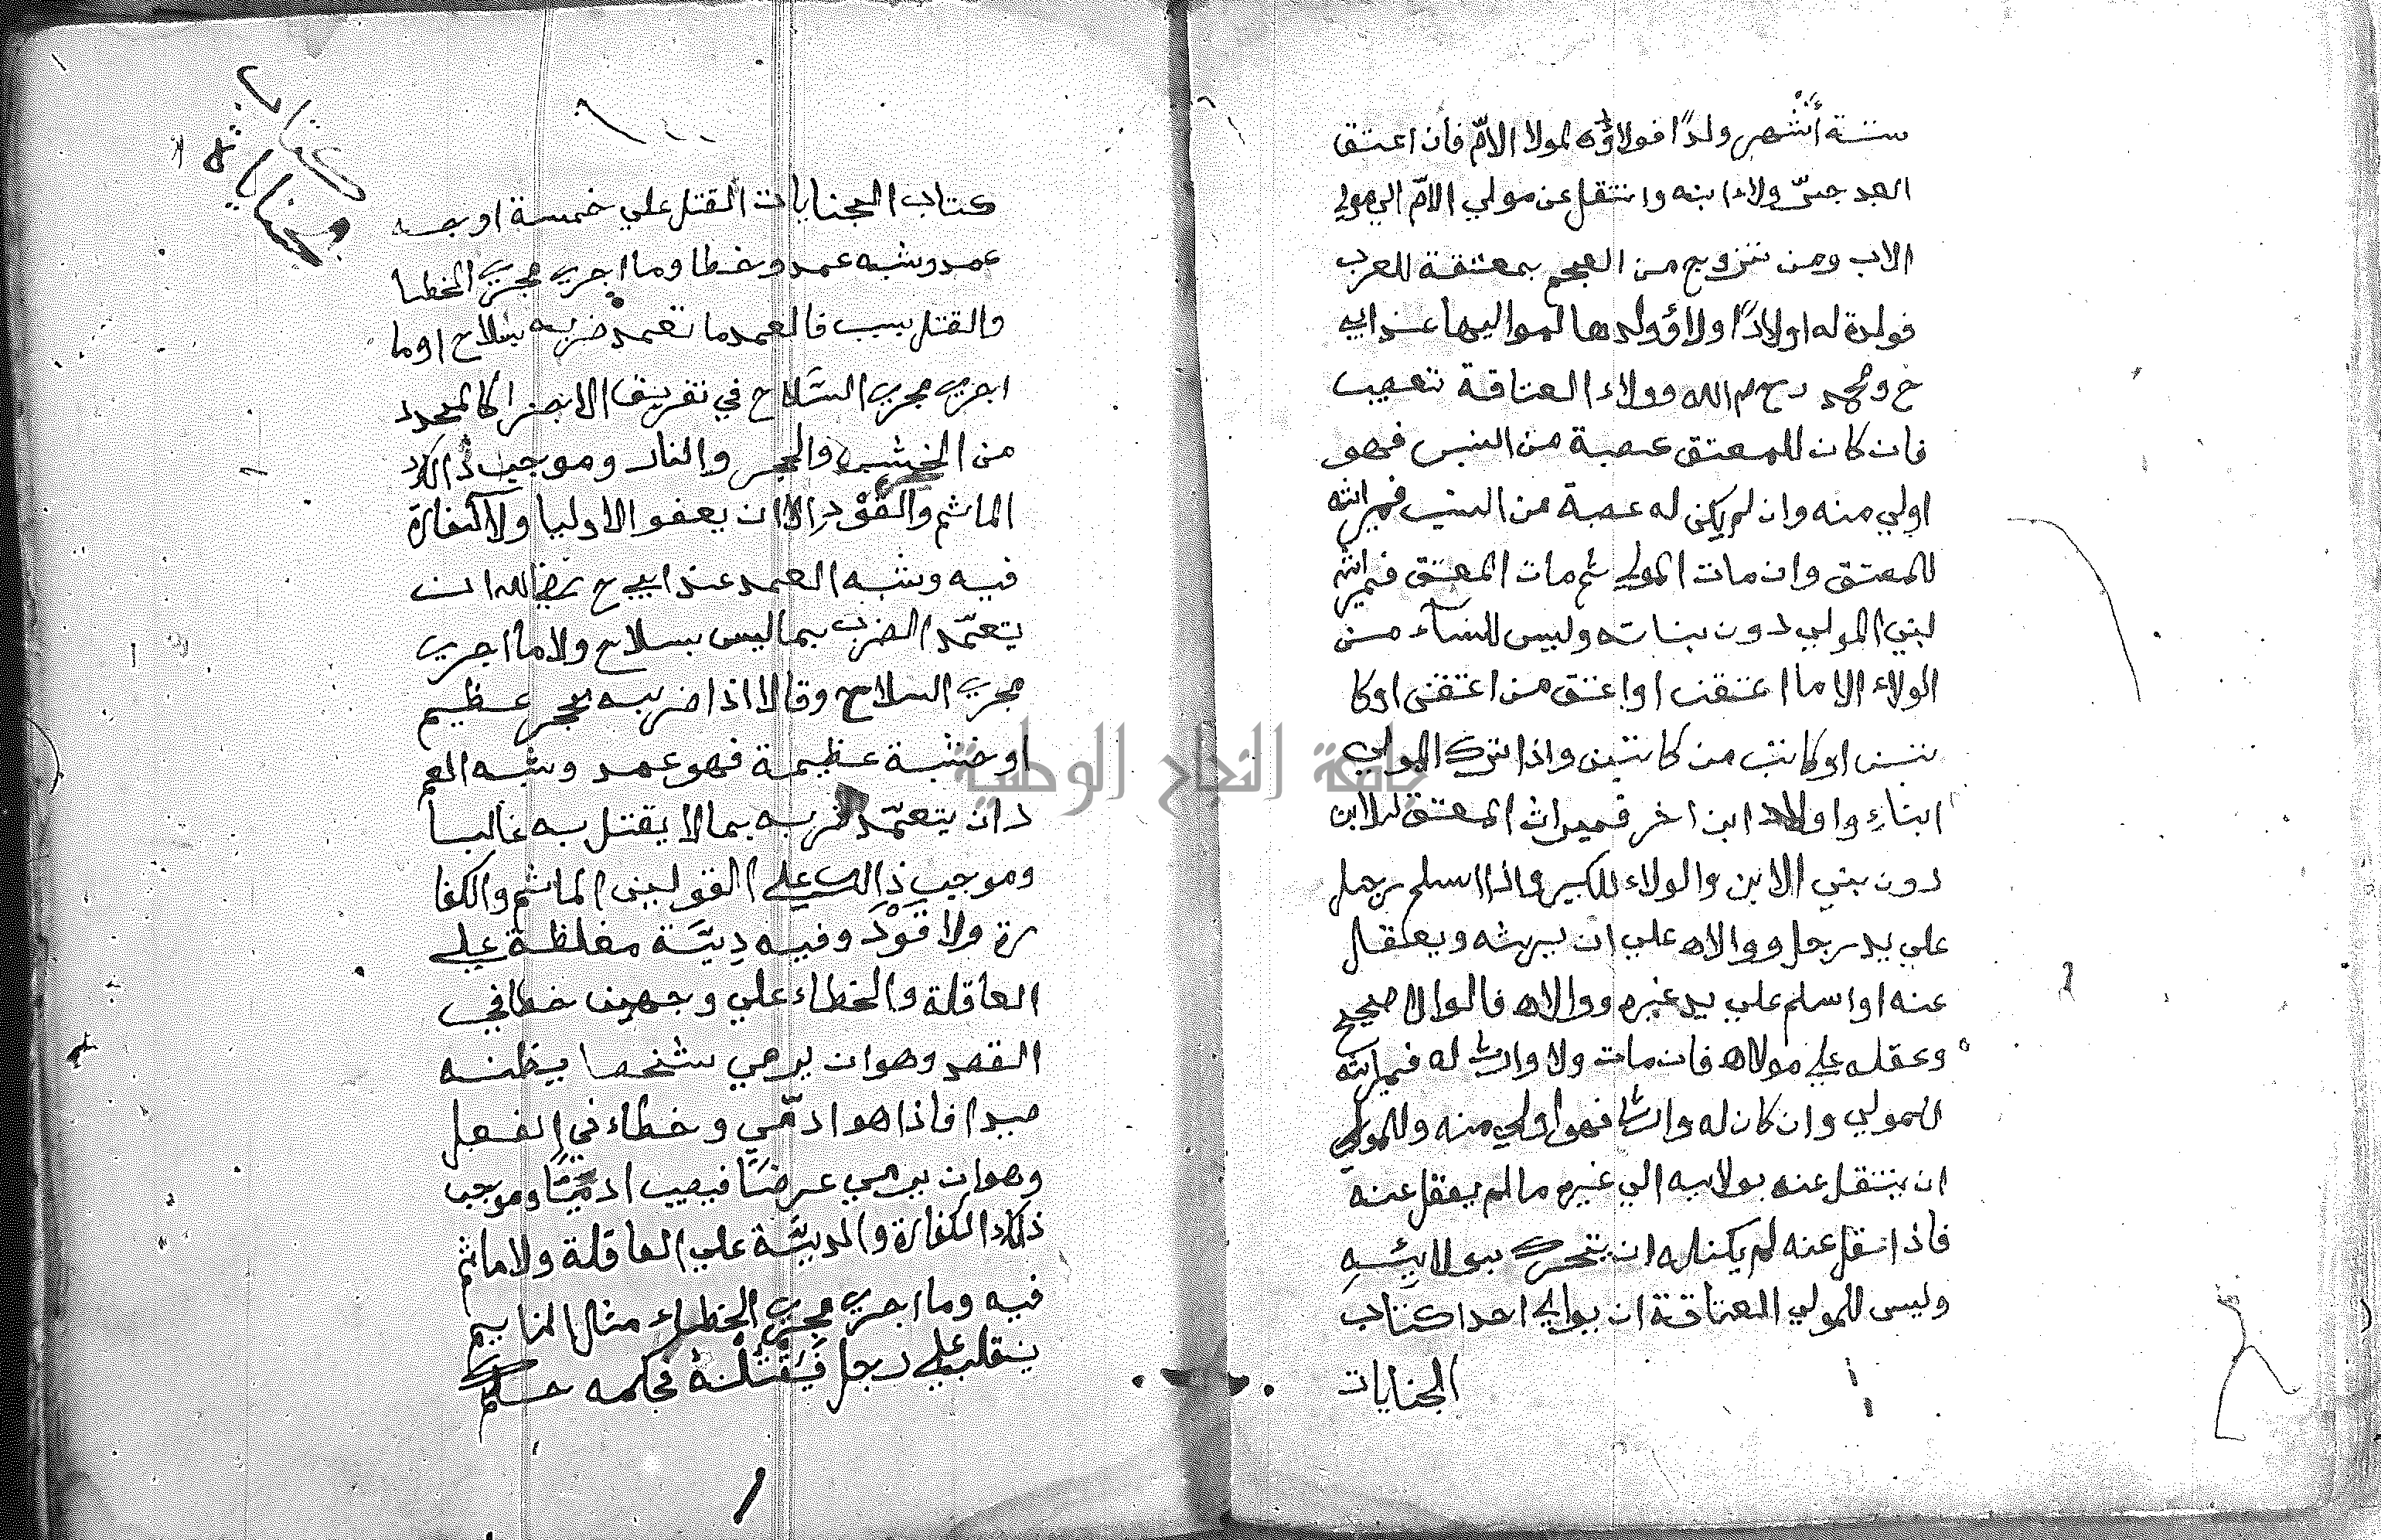 ستة أشهر ولدًا فولاؤه لمولا الامّ فان اعتق
العبد جرّ ولاء ابنه وانتقل عن مولي الامّ الي مولي
الاب ومن تزوج من العجم بمعتقة للعرب
فولدة له اولادًا ولاؤ ولدها لمواليها عند ابي
ح ومحمد رحهم الله وولاء العتاقة تعصيب
فان كان للمعتق عصبة من النسب فهو
اولي منه وان لم يكن له عصبة من النسب فميراثه
للمعتق وان مات المولي ثم مات المعتق فميراثه
لبني المولي دون بناته وليس للنسآء من
الولاء الا ما اعتقن او اعتق من اعتقن او كا
تبن او كاتب من كاتبن واذا ترك المولي
ابناءِ واولاد ابن اخر فميراث المعتق للابن
دون بني الابن والولاء للكبير واذا اسلم رجل
علي يد رجل ووالاه علي ان يرثه ويعقل
عنه او اسلم علي يد غيره ووالاه فالولا صحيح
وعقله علي مولاه فان مات ولا وارث له فميراثه
للمولي وان كان له وارثا فهو اولي منه وللمولي
ان ينتقل عنه بولايه الي غيره ما لم يعقل عنه
فاذا عقل عنه لم يكن له ان يتحرك بولايئه
وليس للمولي العتاقة ان يوالي احدا كتاب
الجنايات
كتاب
جنايات
كتاب الجنايات القتل علي خمسة اوجه
عمد وشبه عمد وخطا وما اجري مجري الخطا
والقتل بسبب فالعمد ما تعمد ضربه بسلاح او ما
اجري مجري السَّلاح في تفريق الاجزا كالمحدد
من الخشب والحجر والنار وموجب ذالك
الماثم والقَوْدِ الا ان يعفو الاوليا ولا كفارة
فيه وشبه العمد عند ابي ح رضي الله ان
يتعمّد الضرب بما ليس بسلاح ولا ما اجري
مجري السلاح وقالا اذا ضربه بحجر عظيم
او خشبة عظيمة فهو عمد وشبه العم
د ان يتعمّد ضربه بما لا يقتل به غالبا
وموجب ذالك علي القولين الماثم والكفا
رة ولا قَوْدَ وفيه دِيَّة مغلظة علي
العاقلة والخطاء علي وجهين خطا في
القصد وهو ان يرمي شخصا يظنه
صيدا فاذا هو ادمّي وخطاء في الفعل
وهو ان يرمي عرضًا فيصيب ادميًّا وموجب
ذالك الكفارة والديَّة علي العاقلة ولا ماثم
فيه وما اجري مجري الخطاء مثل النايم
ينقلب علي رجل فَيَقْتُلْهُ فحكمه حكم
جامعة النجاح الوطنية